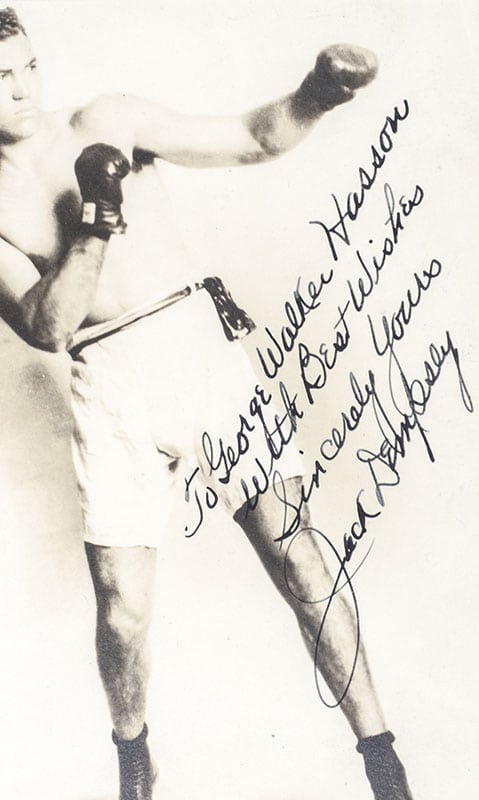 To George Walker Hasson
With Best Wishes
Sincerely Yours
Jack Dempsey